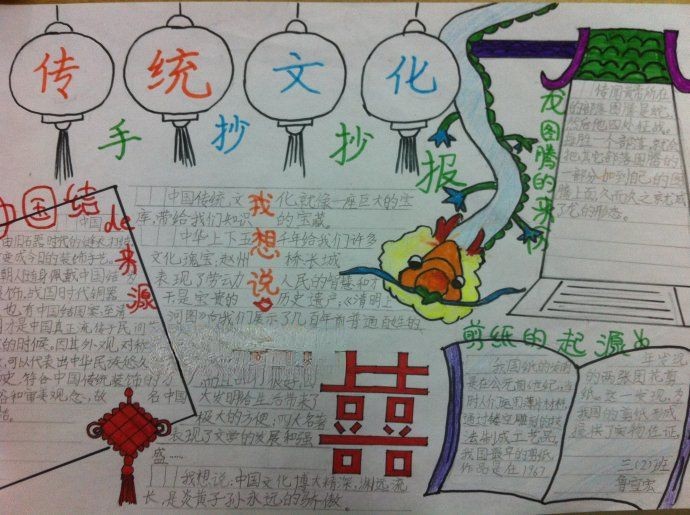 传统文化
手抄抄报
龙图腾的来历
传闻黄帝所在
的部落图腾是蛇
然后他四处征战。
每胜一个部落，就会
把其它部落图腾的
一部分加到自己的图
腾上面。久而久之就成
了龙的形态。
中国结de来源
由旧石器时代的缝衣打结
变成今日的装饰手艺。
朝人随身佩戴中国结
装饰，战国时代铜器
也有中国结图案，至清
才是中国真正流传于民间
的时候。因其外观对称
可以代表出中华民族悠久
史，符合中国传统装饰的
我想说
中国传统文化，就像一座巨大的宝
库，带给我们知识的宝藏。
中华上下五千年给我们许多
文化瑰宝，赵州桥、长城
表现了劳动人民的智慧和才
天是宝贵的历史遗产，《清明上
河图》向我们展示了几百年前普通百姓的
大发明给生活带来了
极大的方便；四大名著
表现了文学的发展和强
盛……
我想说：中国文化，博大精深，渊远流
长，是炎黄子孙永远的骄傲。
囍
剪纸的起源
我国纸的发明
是在公元前
时人们运用薄片材料
通过镂空雕刻的技
法制成工艺品。
我国最早的剪纸
作品是在1967
年发现
的两张团花剪
纸。这一发现，为
我国的剪纸形成
提供了实物佐证。
三(2)班
鲁雪宏